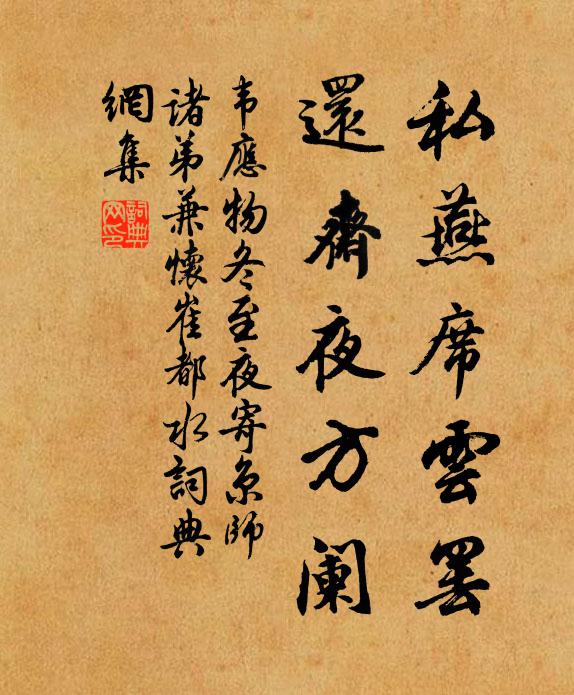 私燕席雲罢
還齋夜方阑
韦應物冬至夜寄京師
诸弟兼懷崔都水詞典
網集
詞典
网印